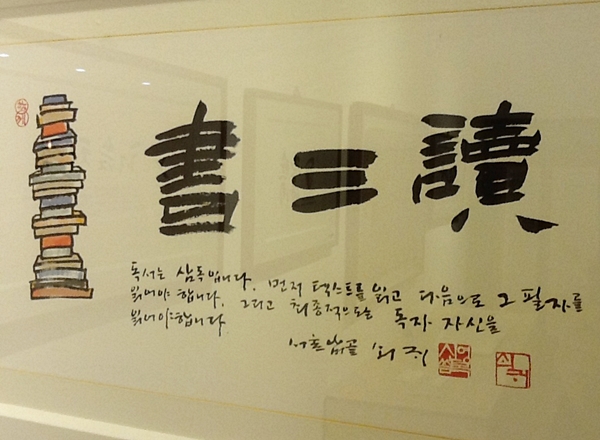 書三讀
독서는 삼독입니다. 먼저 텍스트를 읽고 다음으로 그 필자를
읽어야 합니다. 그리고 최종적으로는 독자 자신을
읽어야합니다.
쇠귀